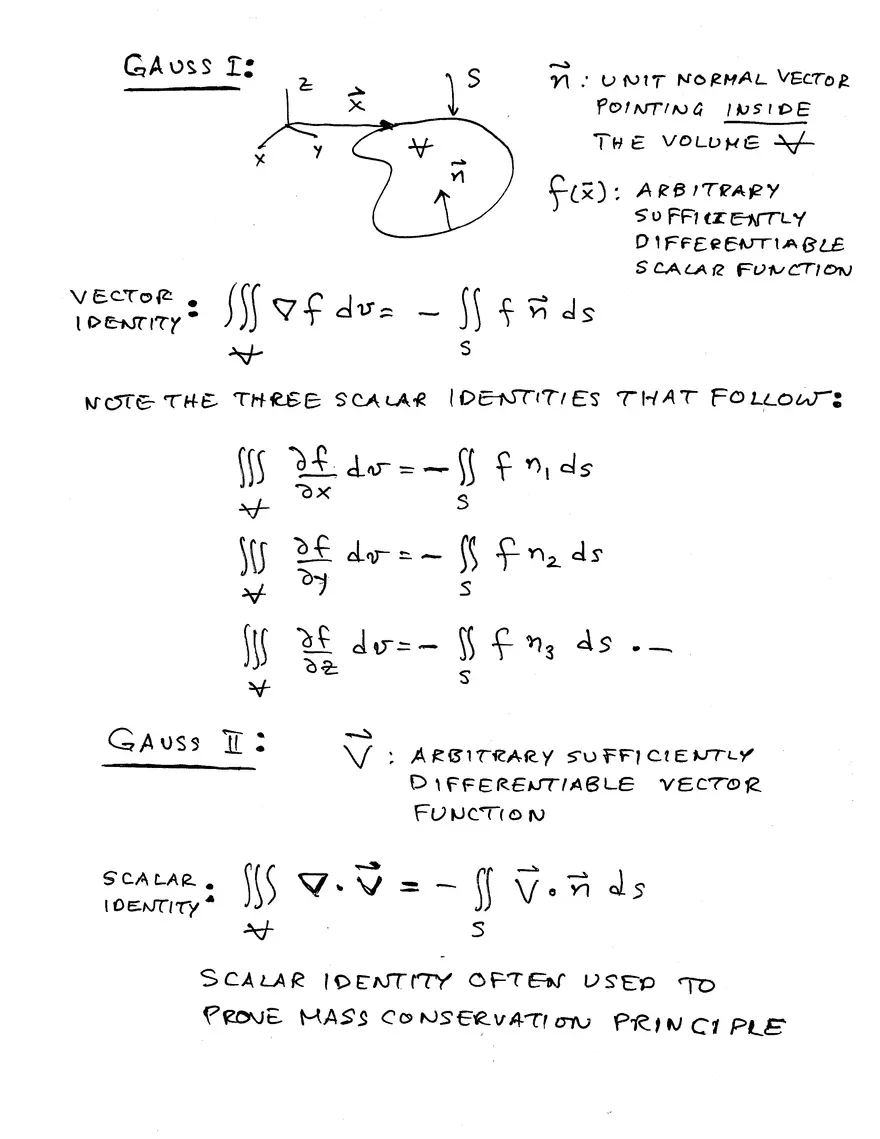 GAUSS I:
z
x⃗
S
x
y
V̶
n⃗
n⃗ : UNIT NORMAL VECTOR
POINTING INSIDE
THE VOLUME V̶
f(x⃗): ARBITRARY
SUFFICIENTLY
DIFFERENTIABLE
SCALAR FUNCTION
VECTOR IDENTITY : ∭_V̶ ∇f dv = − ∬_S f n⃗ ds
NOTE THE THREE SCALAR IDENTITIES THAT FOLLOW:
∭_V̶ ∂f/∂x dv = − ∬_S f n₁ ds
∭_V̶ ∂f/∂y dv = − ∬_S f n₂ ds
∭_V̶ ∂f/∂z dv = − ∬_S f n₃ ds . —
GAUSS II:
V⃗ : ARBITRARY SUFFICIENTLY
DIFFERENTIABLE VECTOR
FUNCTION
SCALAR IDENTITY : ∭_V̶ ∇·V⃗ = − ∬_S V⃗·n⃗ ds
SCALAR IDENTITY OFTEN USED TO
PROVE MASS CONSERVATION PRINCIPLE